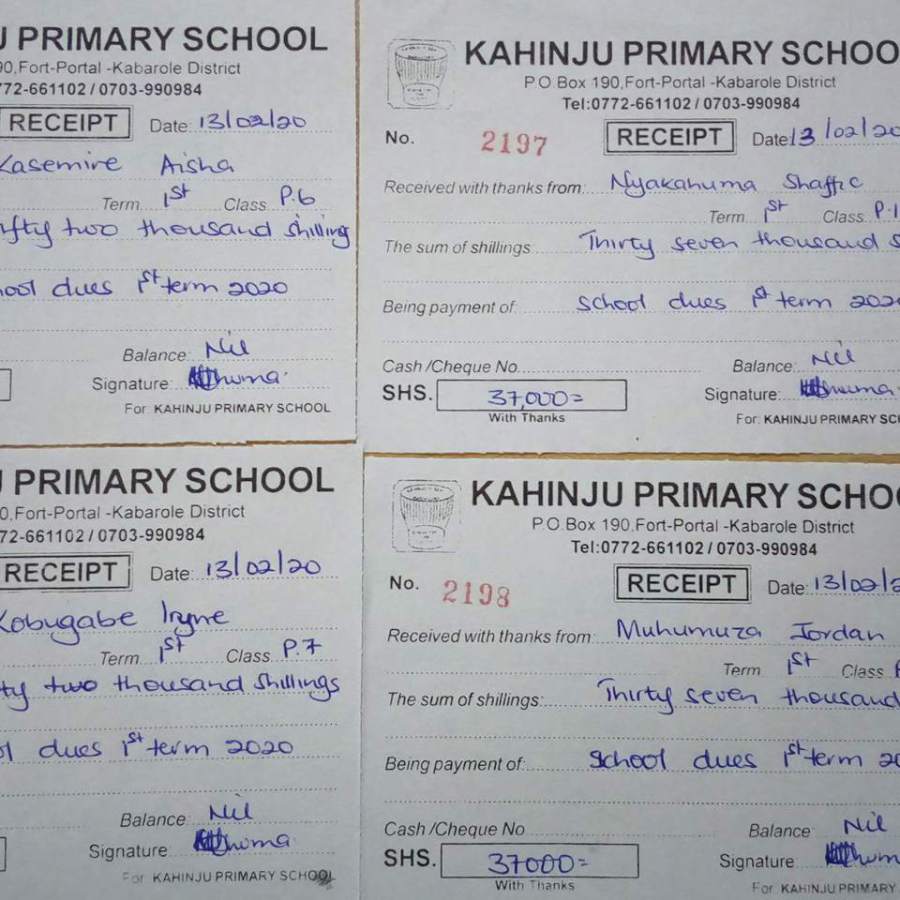 J PRIMARY SCHOOL
90,Fort-Portal -Kabarole District
772-661102 / 0703-990984
RECEIPT Date: 13/02/20
Kasemire Aisha
Term 1st Class P.6
ifty two thousand shilling
hool dues 1st term 2020
Balance: Nil
Signature:
For KAHINJU PRIMARY SCHOOL
KAHINJU PRIMARY SCHOO
P.O Box 190,Fort-Portal -Kabarole District
Tel:0772-661102 / 0703-990984
No. 2197 RECEIPT Date 13/02/20
Received with thanks from: Nyakahuma Shaffic
Term 1st Class P.1
The sum of shillings Thirty seven thousand s
Being payment of: school dues 1st term 202
Cash /Cheque No. Balance: Nil
SHS. 37,000= Signature:
With Thanks For: KAHINJU PRIMARY SC
J PRIMARY SCHOOL
0,Fort-Portal -Kabarole District
72-661102 / 0703-990984
RECEIPT Date: 13/02/20
Kobugabe Iryne
Term 1st Class P.7
ty two thousand shillings
ol dues 1st term 2020
Balance: Nil
Signature:
For KAHINJU PRIMARY SCHOOL
KAHINJU PRIMARY SCHOO
P.O Box 190,Fort-Portal -Kabarole District
Tel:0772-661102 / 0703-990984
No. 2198 RECEIPT Date: 13/02/2
Received with thanks from Muhumuza Jordan
Term 1st Class
The sum of shillings: Thirty seven thousand
Being payment of: school dues 1st term 20
Cash /Cheque No Balance Nil
SHS. 37000= Signature:
With Thanks For KAHINJU PRIMARY